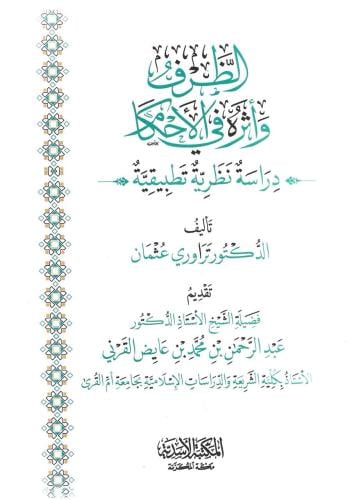 الظَّرْفُ
وَأَثَرُهُ فِي الأَحْكَامِ
دِرَاسَةٌ نَظَرِيَّةٌ تَطْبِيقِيَّةٌ
تَأْلِيفُ
الدُّكْتُورِ تَرَاوْرِي عُثْمَان
تَقْدِيمُ
فَضِيلَةِ الشَّيْخِ الأُسْتَاذِ الدُّكْتُورِ
عَبْدِ الرَّحْمٰنِ بْنِ مُحَمَّدِ بْنِ عَايِضِ القَرْنِي
الأُسْتَاذِ بِكُلِّيَّةِ الشَّرِيعَةِ وَالدِّرَاسَاتِ الإِسْلَامِيَّةِ بِجَامِعَةِ أُمِّ القُرَى
المَكْتَبَةُ الأَسَدِيَّةُ
مَكَّةُ المُكَرَّمَةُ